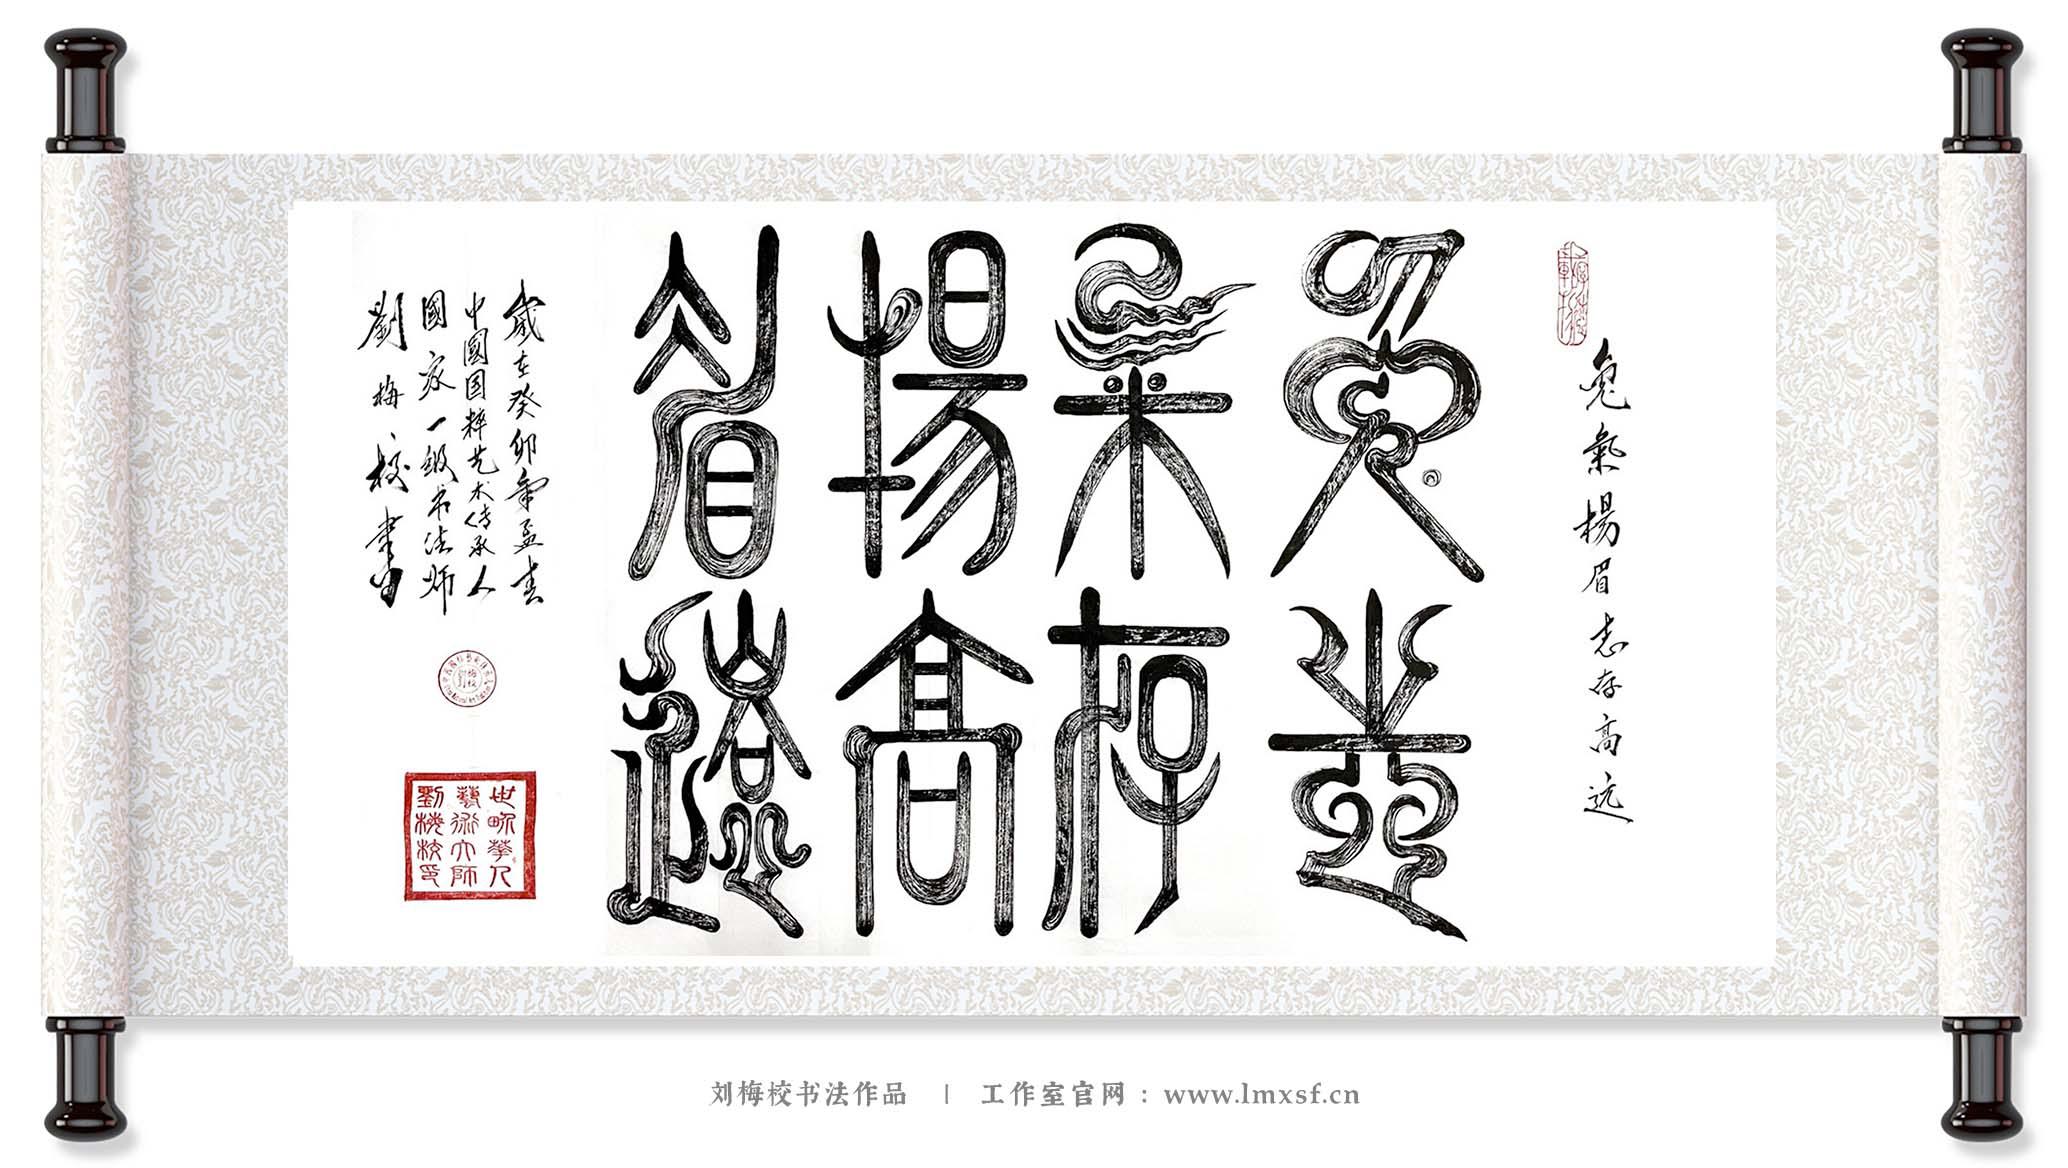 兔氣揚眉志存高远
兔氣揚眉
志存高遠
歲在癸卯年孟春
中國国粹艺术传承人
國家一级书法师
劉梅校書
世界華人
藝術大師
劉梅校印
刘梅校书法作品 | 工作室官网：www.lmxsf.cn